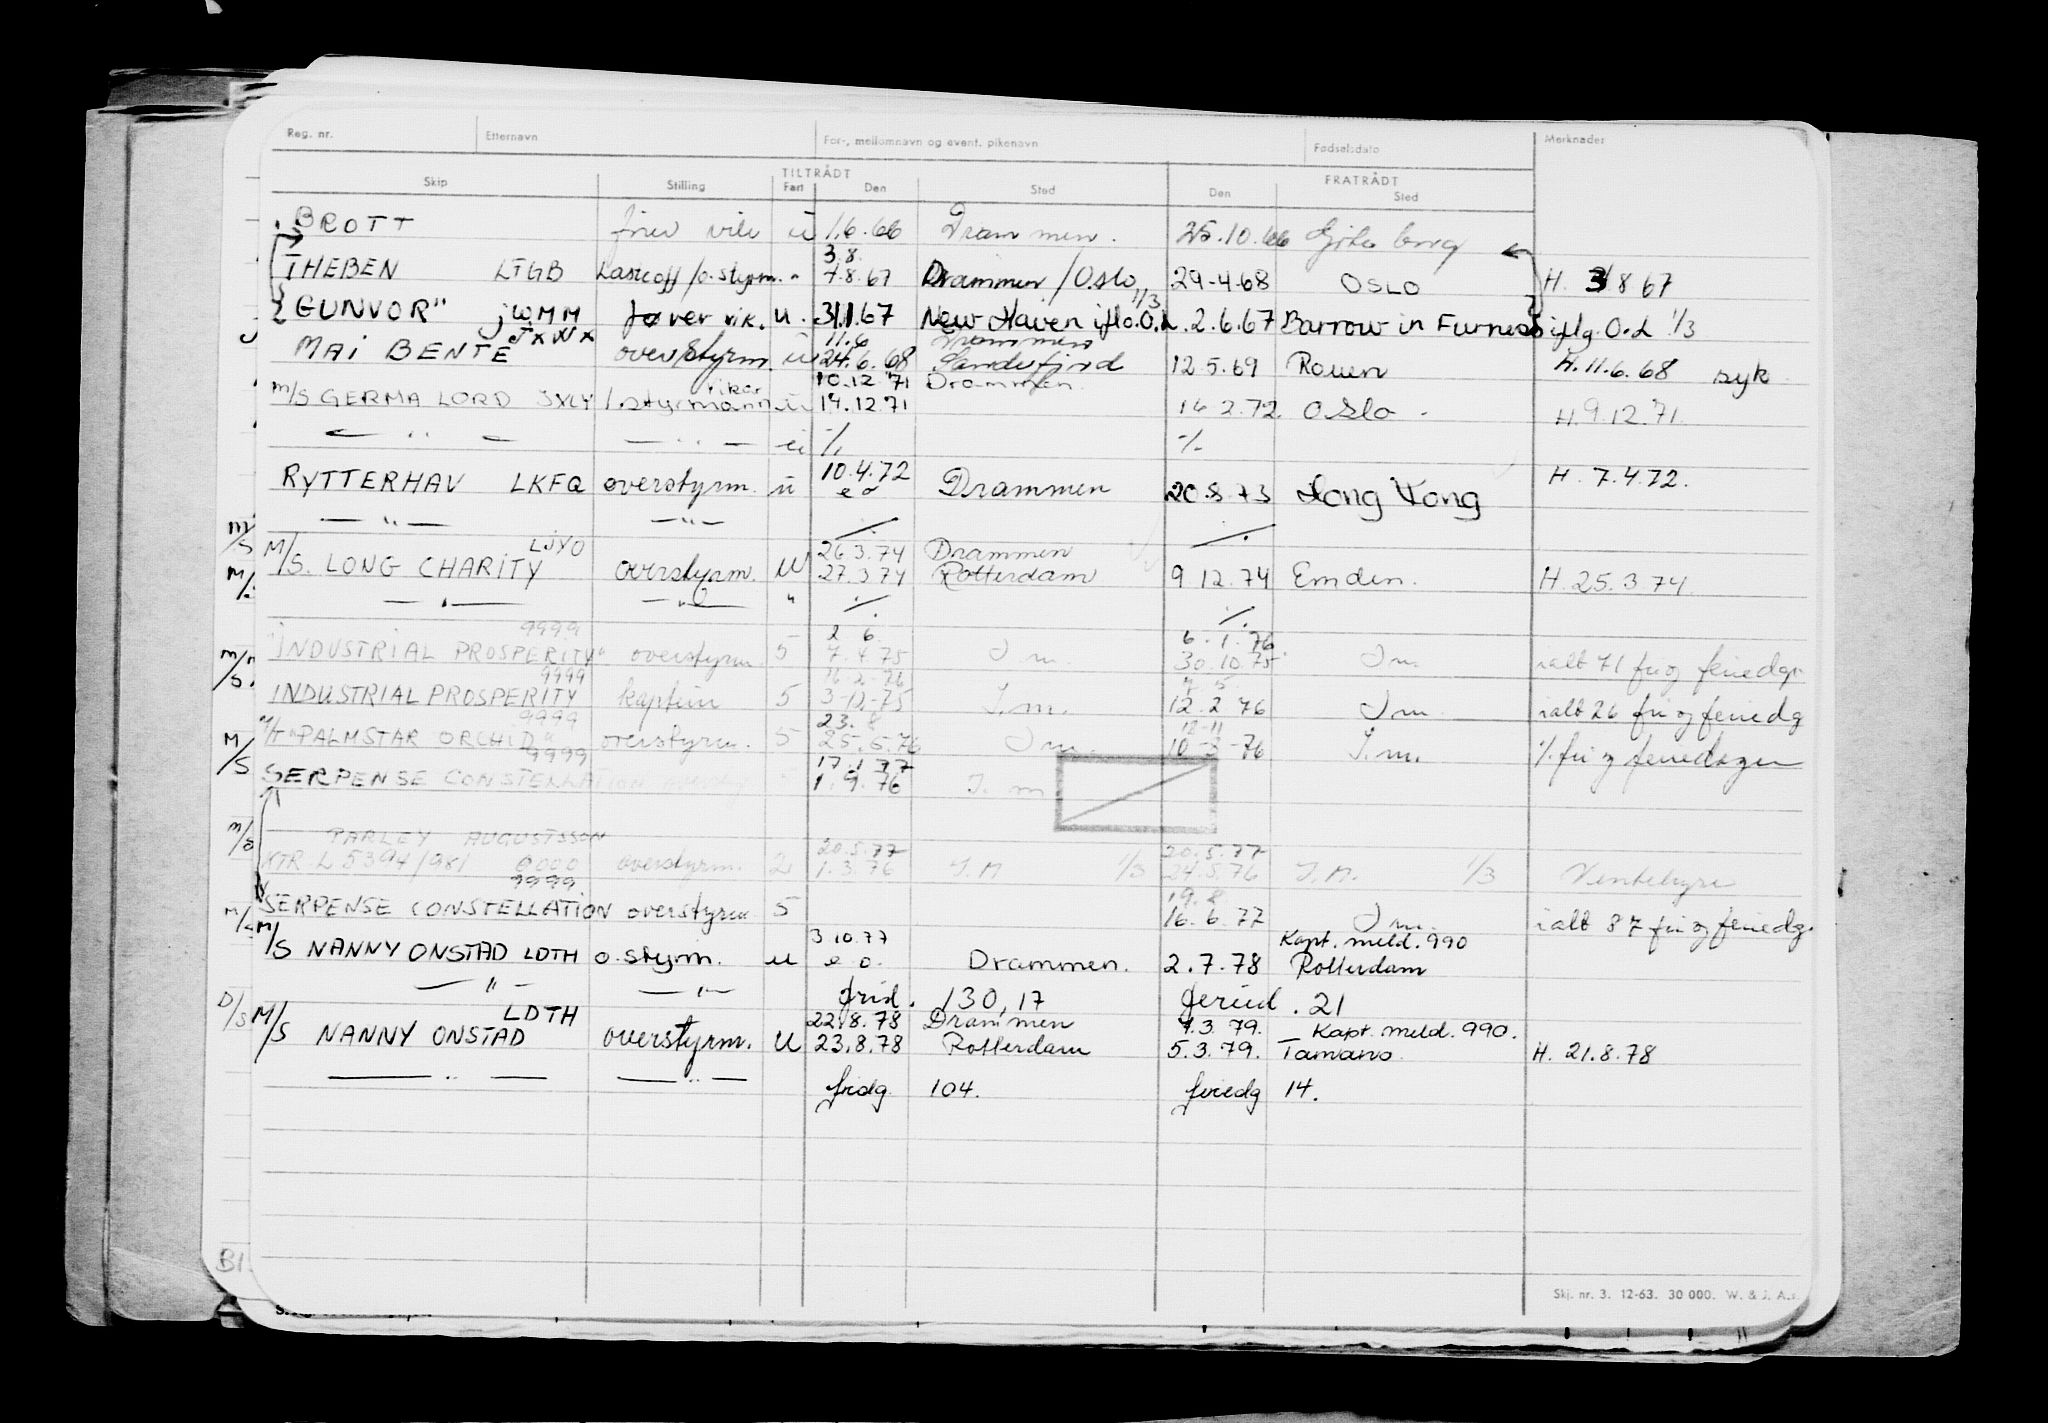 Reg. nr. Etternavn For-, mellomnavn og event. pikenavn Fødselsdato Merknader
TILTRÅDT FRATRÅDT
Skip Stilling Fart Den Sted Den Sted
BROTT u 1.6.66 Drammen. 25.10.66
3.8.
THEBEN LTGB Lasteoff/o.styrm. " 4.8.67 Drammen/Oslo 29-4-68 OSLO H. 3/8 67
1/3
"GUNVOR" JWMM u. 31.1.67 New Haven iflg. O.L. 2.6.67 Barrow in Furness iflg. O.L 1/3
JXWX 11.6 Drammen
MAI BENTE overstyrm. u 24.6.68 Sandefjord 12.5.69 Rouen H. 11.6.68 syk
vikar 10.12.71 Drammen
M/S GERMA LORD JXLY 1. styrmann u 14.12.71 16 2.72 OSLO - H 9.12.71.
— " — — " — u ./. ./.
10.4.72
RYTTERHAV LKFQ overstyrm. u e o Drammen 20.8.73 Hong Kong H. 7.4.72.
— " — — " — ./. ./.
M/S LJYO 26.3.74 Drammen
M/S. LONG CHARITY overstyrm. U 27.3.74 Rotterdam 9.12.74 Emden. H. 25.3.74.
M/S
— " — — " — " ./. ./.
9999 2 6. 6.1.76
"INDUSTRIAL PROSPERITY" overstyrm. 5 7.4.75 I m. 30.10.75 I m. ialt 71 fri og feriedgr.
M/S 9999 16-2-76 4 5
INDUSTRIAL PROSPERITY kaptein 5 3-12-75 I.m. 12.2.76 I m ialt 26 fri og feriedg
9999 23.8 18-11
M/T "PALMSTAR ORCHID" overstyrm. 5 25.5.76 I m. 10-8-76 I.m. ./. fri og feriedager
M/S 9999 17.1.77
SERPENSE CONSTELLATION 1.9.76 I. m
PARLEY AUGUSTSSON
20.5.77 20.5.77
KTR. L 5394/981 0000 overstyrm. 2 1.3.76 I.M 1/3 24.5.76 I.M. 1/3 Ventehyre
9999 19.8
SERPENSE CONSTELLATION overstyrm 5 16.6.77 I m. ialt 87 fri og feriedg.
3.10.77 Kapt. meld. 990
M/S NANNY ONSTAD LDTH o. styrm. u e o. Drammen. 2.7.78 Rotterdam
— " — — " — frid. 130,17 feried. 21
D/S LDTH 22.8.78 Drammen 4.3.79. — Kapt. meld. 990.
M/S NANNY ONSTAD overstyrm. U 23.8.78 Rotterdam 5.3.79. Tamano. H. 21.8.78
— " — — " — fridg 104. feriedg 14.
B1
Skj. nr. 3. 12-63. 30 000. W. & J. A.s.